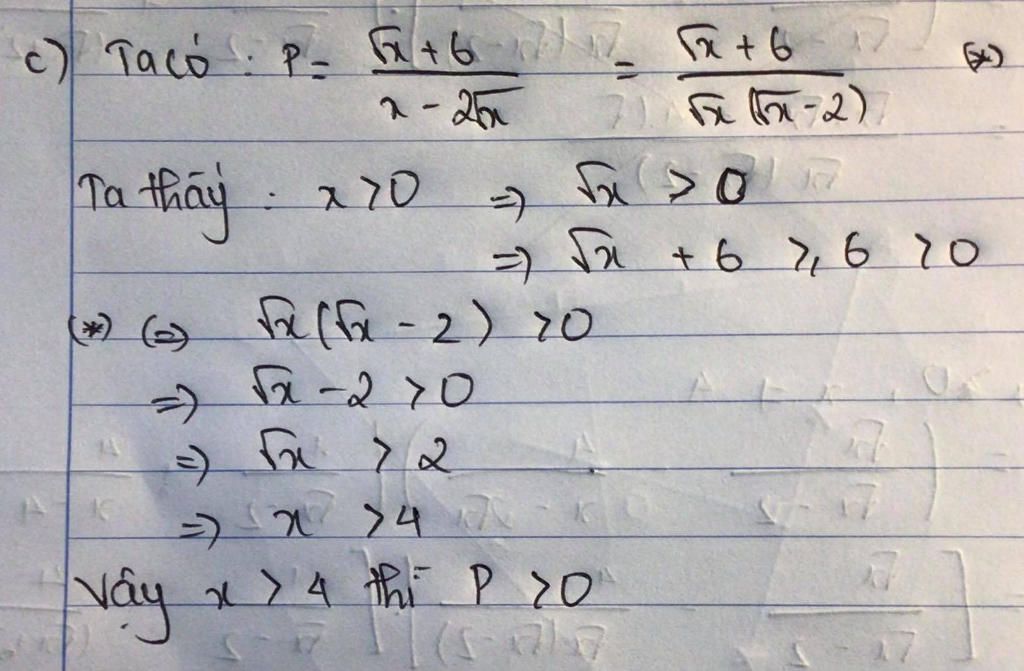 c) Ta có : P = (√x + 6)/(x - 2√x) = (√x + 6)/(√x (√x - 2)) (*)
Ta thấy : x > 0 => √x > 0
=> √x + 6 ≥ 6 > 0
(*) (=) √x (√x - 2) > 0
=> √x - 2 > 0
=> √x > 2
=> x > 4
Vậy x > 4 thì P > 0